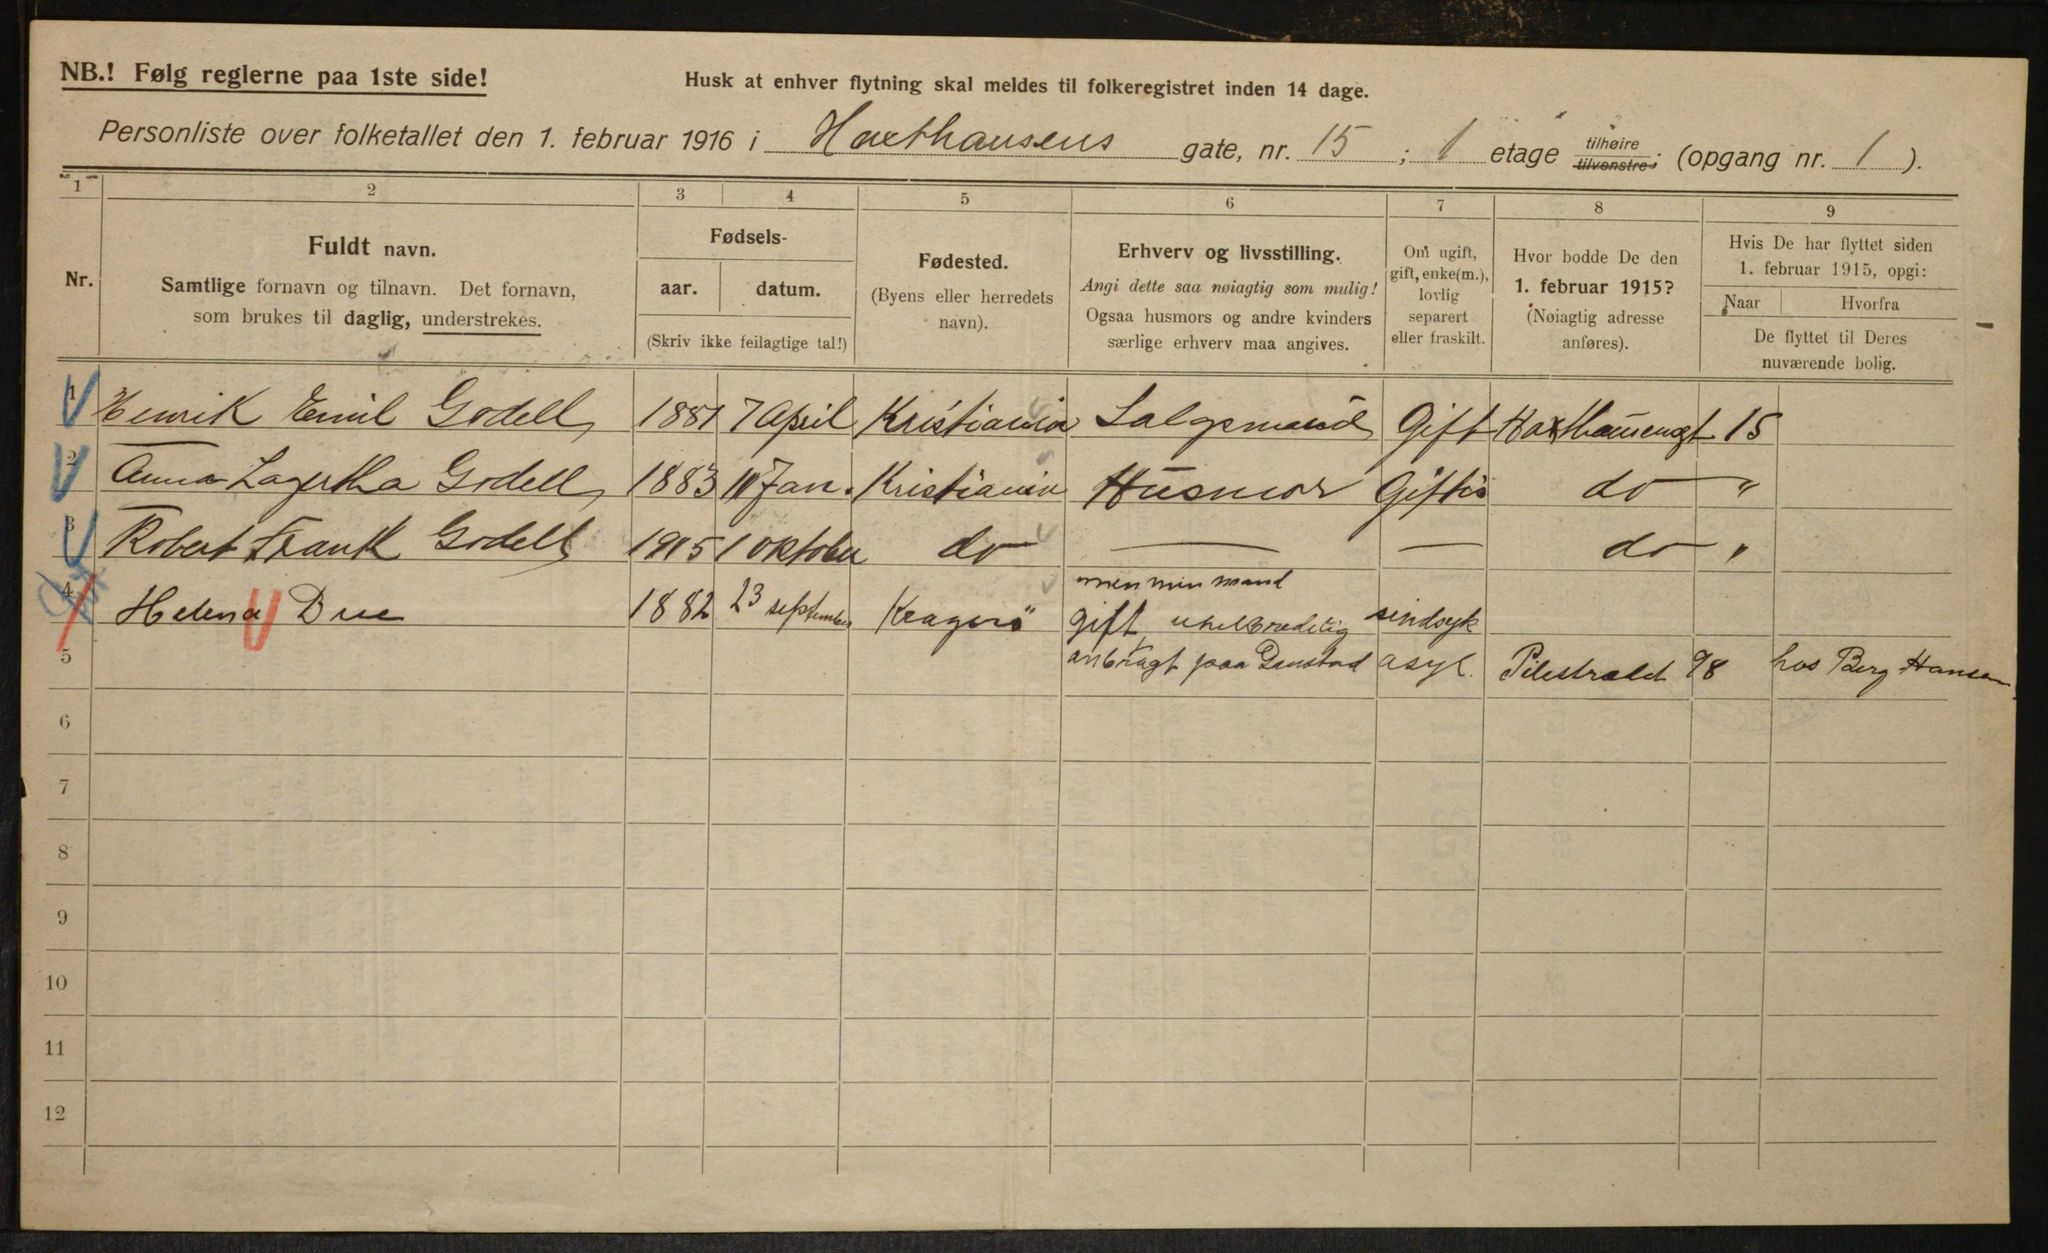 NB.! Følg reglerne paa 1ste side!
Husk at enhver flytning skal meldes til folkeregistret inden 14 dage.
Personliste over folketallet den 1. februar 1916 i Haxthausens gate, nr. 15 ; 1 etage tilhøire tilvenstre; (opgang nr. 1 ).
1 2 3 4 5 6 7 8 9
Nr.
Fuldt navn.
Samtlige fornavn og tilnavn. Det fornavn,
som brukes til daglig, understrekes.
Fødsels-
aar. datum.
(Skriv ikke feilagtige tal!)
Fødested.
(Byens eller herredets
navn).
Erhverv og livsstilling.
Angi dette saa nøiagtig som mulig!
Ogsaa husmors og andre kvinders
særlige erhverv maa angives.
Om ugift,
gift, enke(m.),
lovlig
separert
eller fraskilt.
Hvor bodde De den
1. februar 1915?
(Nøiagtig adresse
anføres).
Hvis De har flyttet siden
1. februar 1915, opgi:
Naar Hvorfra
De flyttet til Deres
nuværende bolig.
1 Henrik Emil Godell 1881 7 April Kristiania Salgsmand Gift Haxthausengt 15
2 Anna Lagertha Godell 1883 Jan. Kristiania Husmor do "
3 Robert Frank Godell 1905 1 Oktober do — — do "
men min mand
4 Helena Due 1882 23 september Kragerö gift, uhelbredelig sindsyk
5 anbragt paa Gaustad asyl. Pilestrædet 98 hos Berg Hansen
6
7
8
9
10
11
12